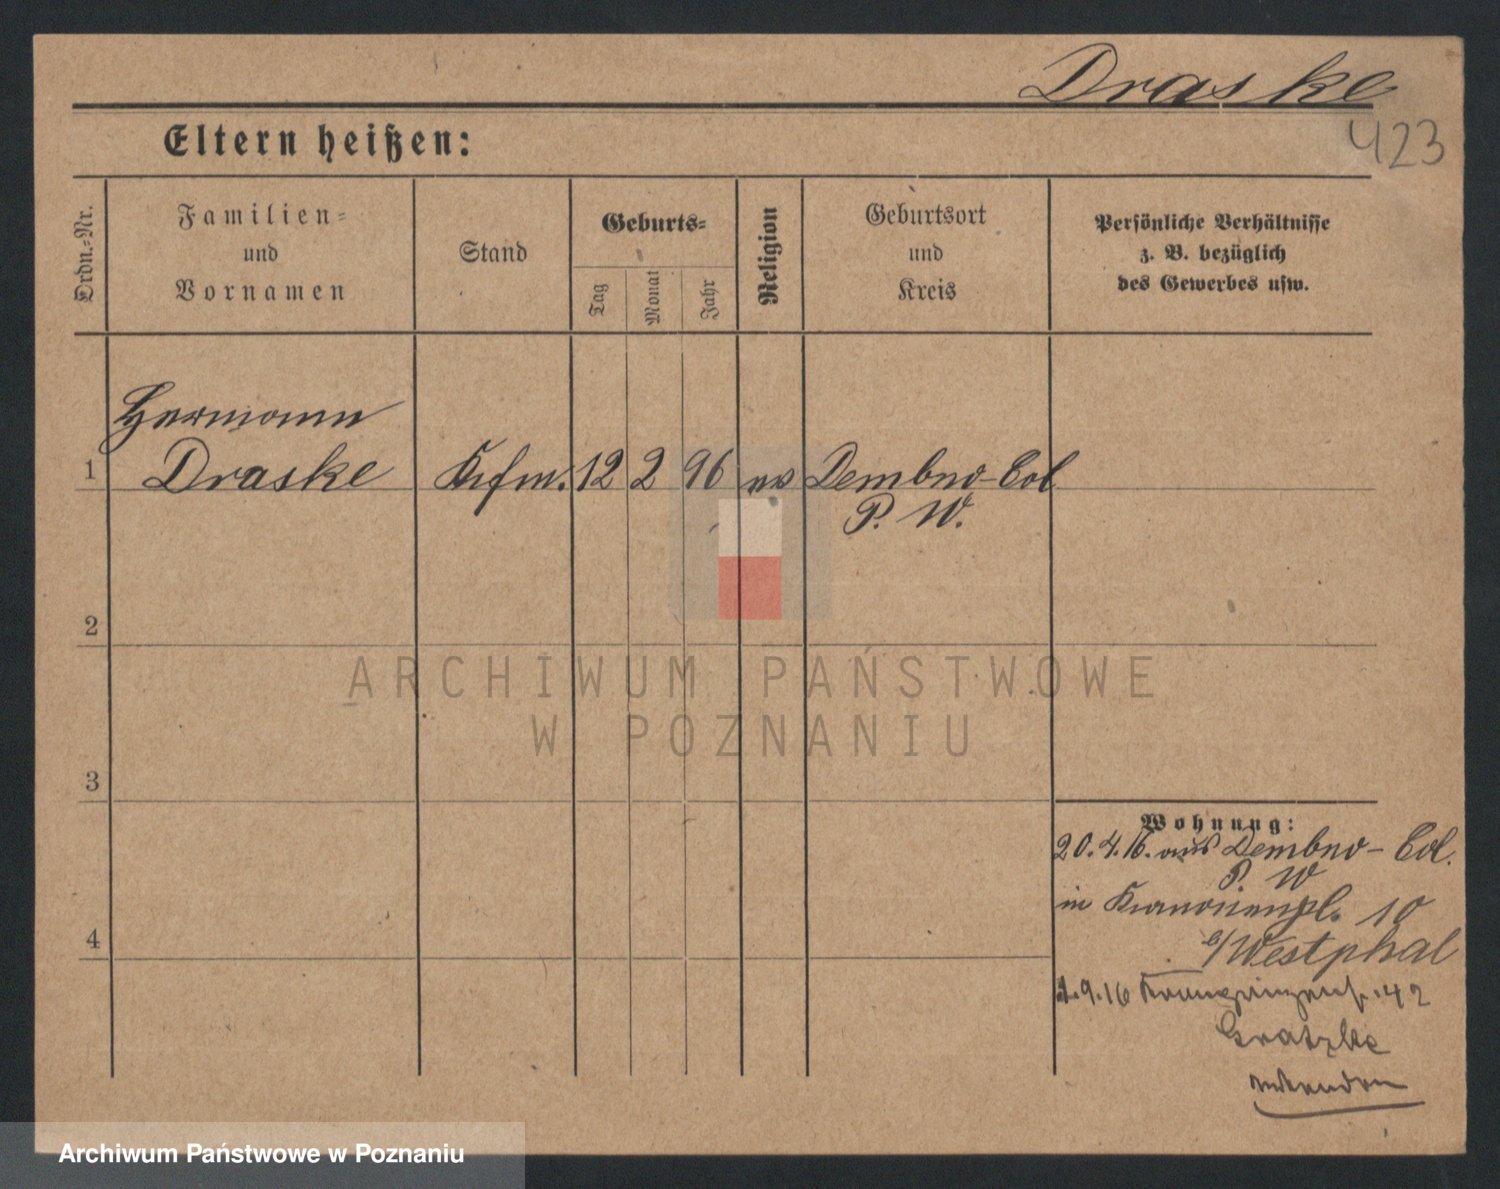 Draske
423
Eltern heißen:
Ordn.-Nr.
Familien-
und
Vornamen
Stand
Geburts-
Tag
Monat
Jahr
Religion
Geburtsort
und
Kreis
Persönliche Verhältnisse
z. B. bezüglich
des Gewerbes usw.
Hermann
1 Draske Kfm. 12 2 96 ev Dembno-Col
P. W.
2
ARCHIWUM PAŃSTWOWE
W POZNANIU
3
Wohnung:
20.4.16. aus Dembno-Col.
P. W
in Kanonenpl. 10
4
b/Westphal
1.9.16 Kronprinzenst. 42
Gratzke
Archiwum Państwowe w Poznaniu